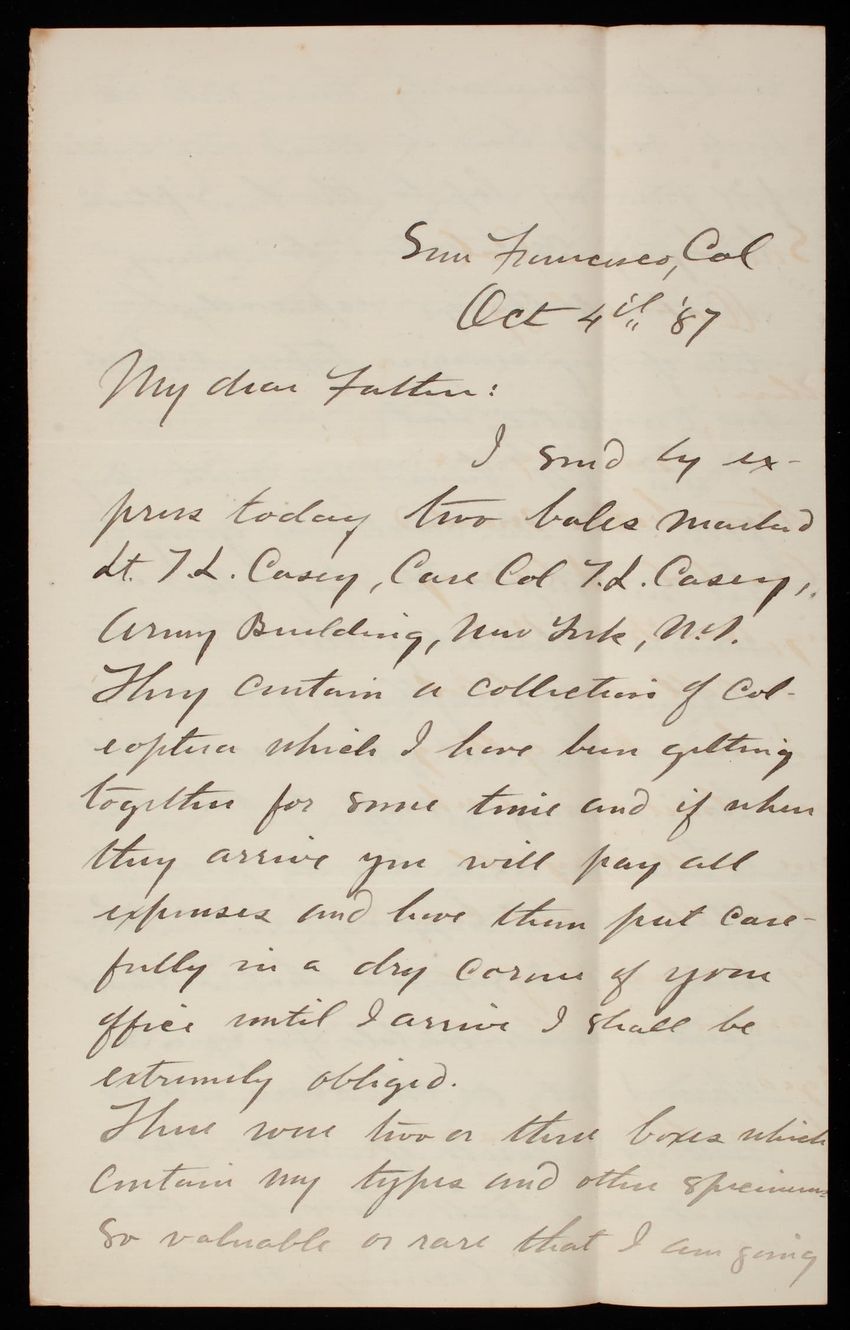 San Francisco, Cal
Oct 4th '87
My dear Father:
I send by ex-
press today two bales marked
Lt. T.L. Casey, Care Col T.L. Casey,
Army Building, New York, N.Y.
They contain a collection of Col-
eoptera which I have been getting
together for some time and if when
they arrive you will pay all
expenses and have them put care-
fully in a dry corner of your
office until I arrive I shall be
extremely obliged.
There were two or three boxes which
contain my types and other specimens
so valuable or rare that I am going